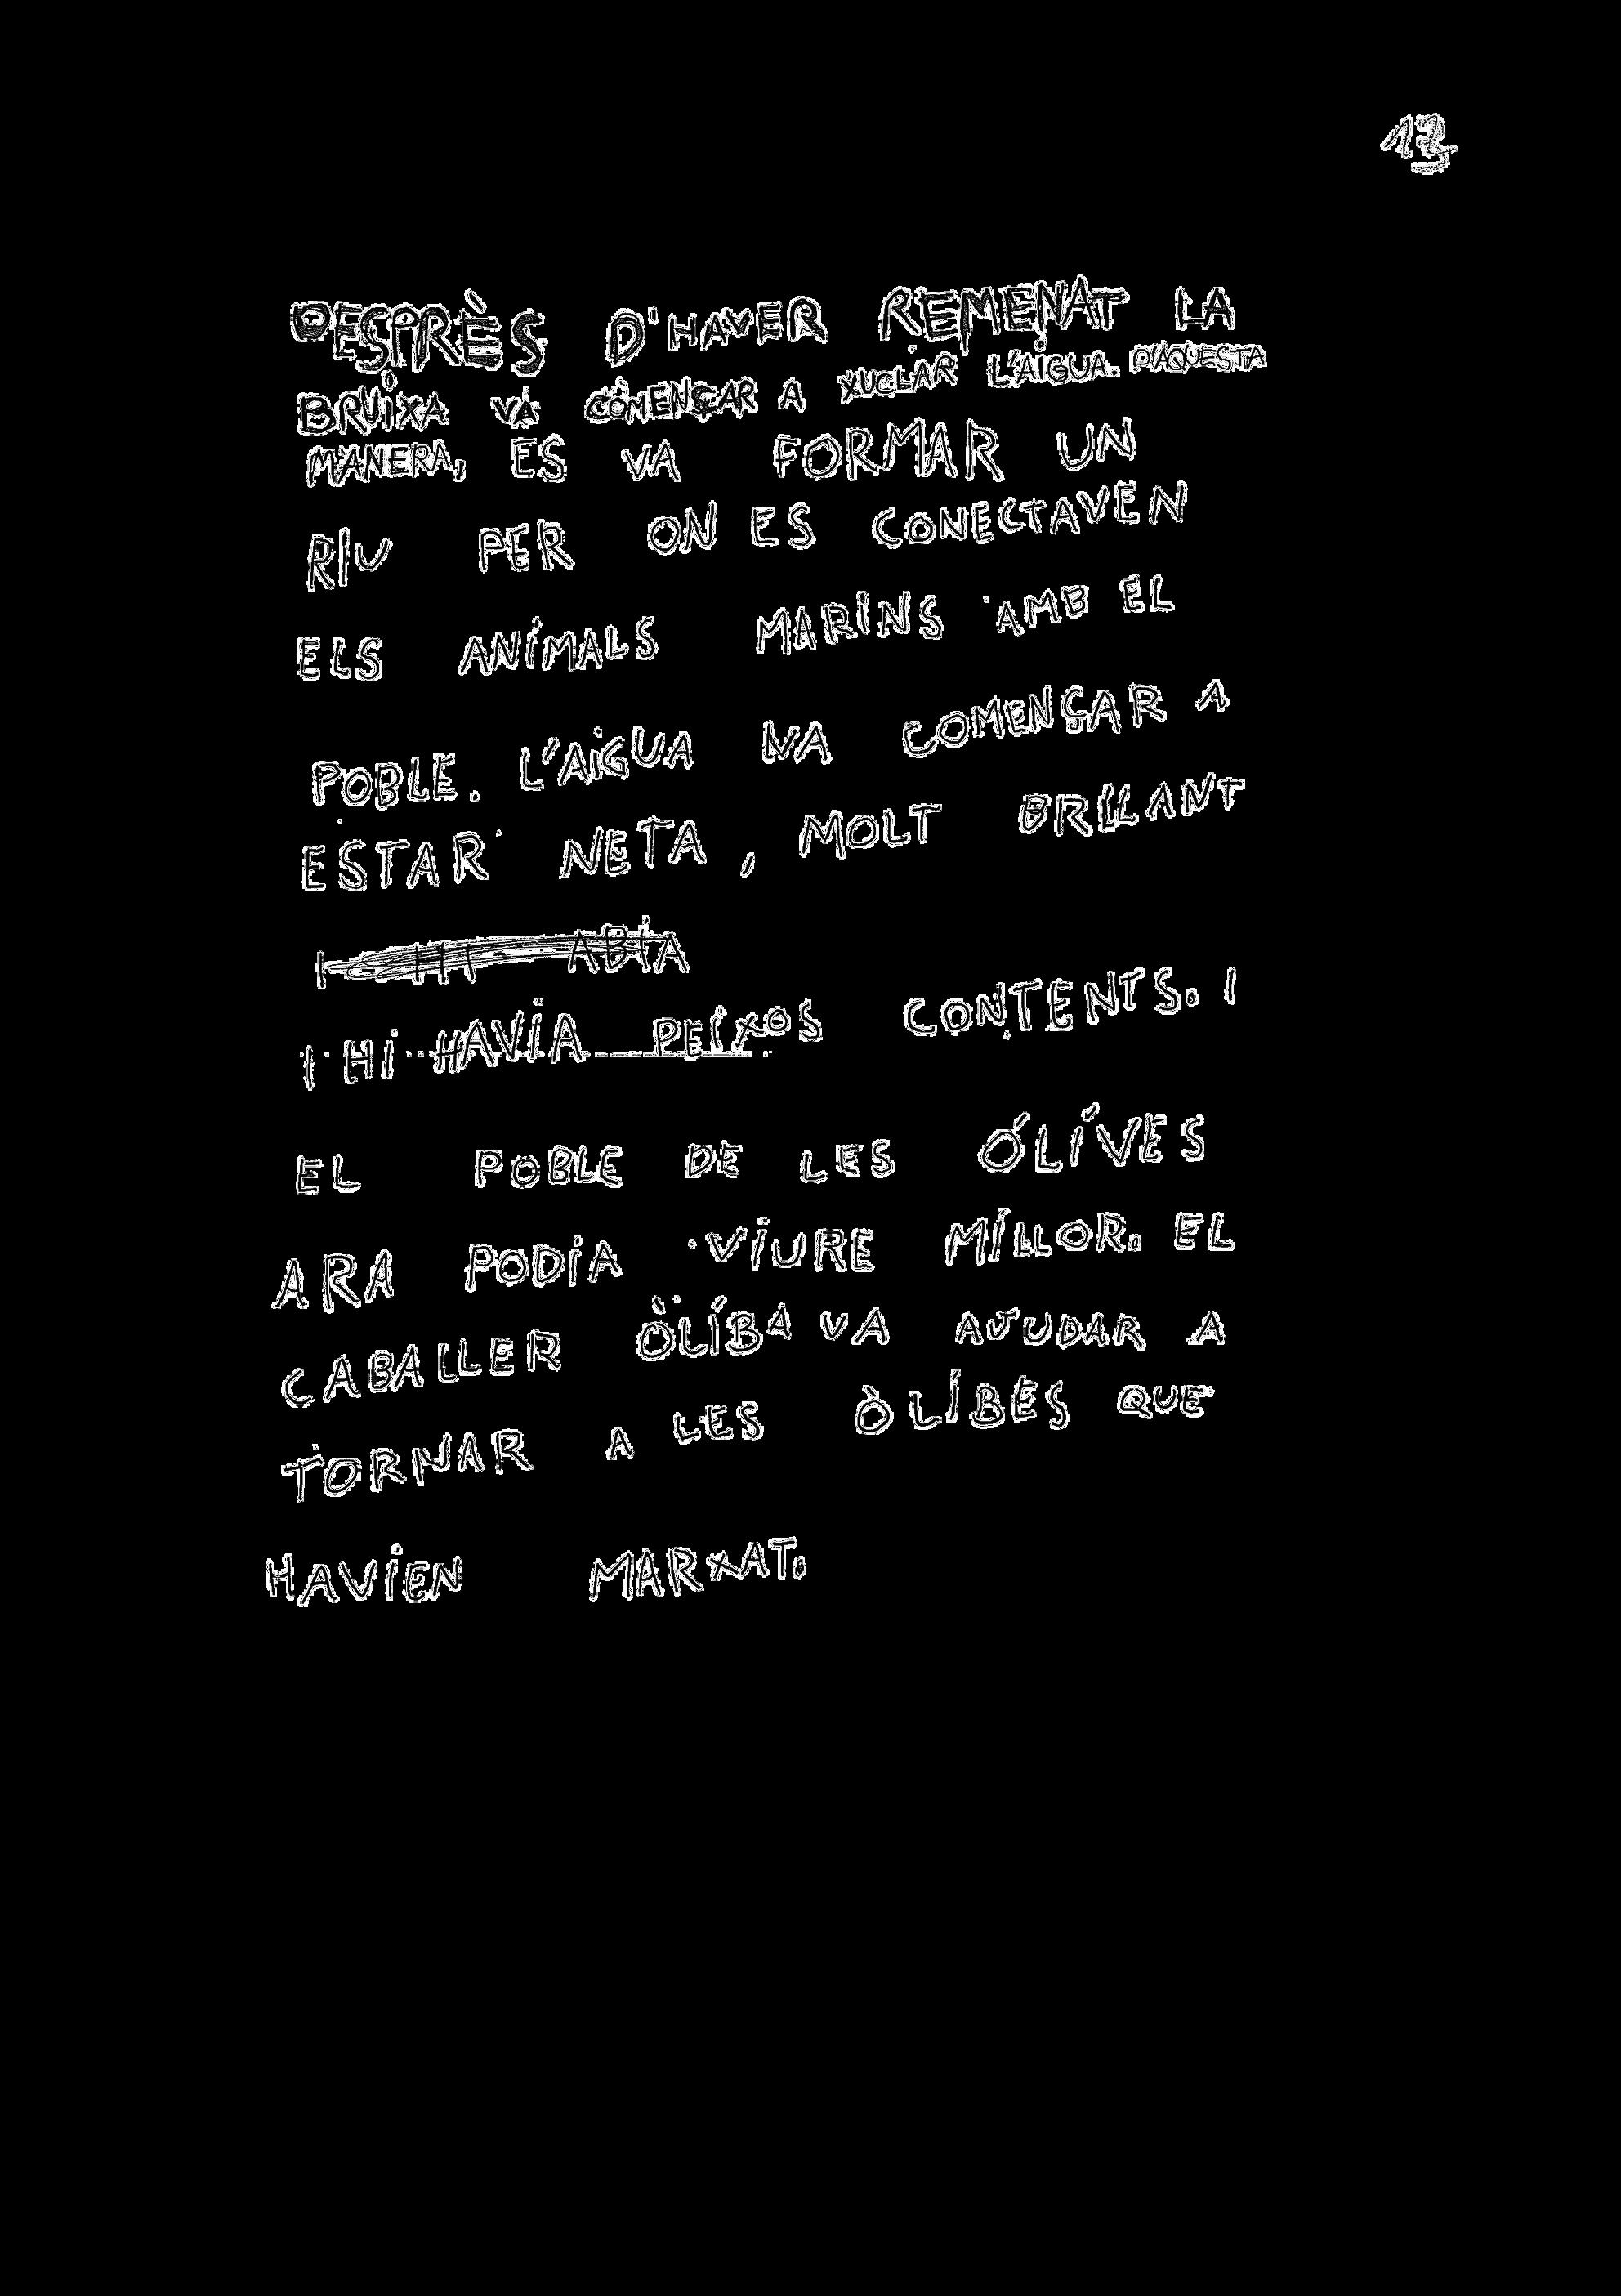 DESPRÈS D'HAVER REMENAT LA
BRUIXA VA COMENÇAR A XUCLAR L'AIGUA. D'AQUESTA
MANERA, ES VA FORMAR UN
RIU PER ON ES CONECTAVEN
ELS ANIMALS MARINS AMB EL
POBLE. L'AIGUA VA COMENÇAR A
ESTAR NETA, MOLT BRILLANT
I HI HAVIA PEIXOS CONTENTS. I
EL POBLE DE LES ÓLÍVES
ARA PODIA VIURE MÍLLOR. EL
CABALLER ÒLÍBA VA AJUDAR A
TORNAR A LES ÒLÍBES QUE
HAVIEN MARXAT.